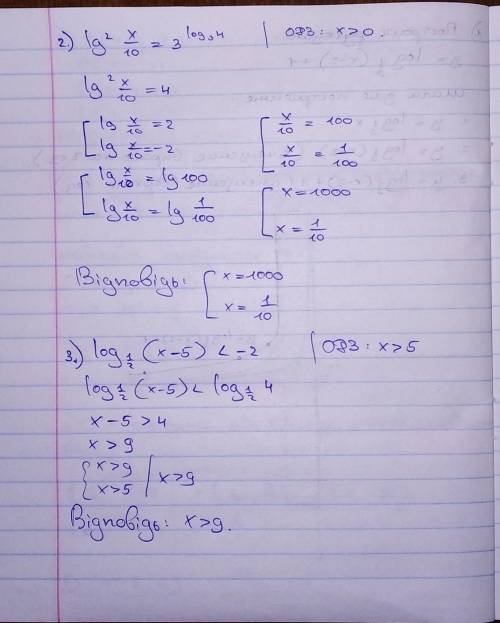 2.) lg² x/10 = 3^(log₃ 4) | ОДЗ: x>0.
lg² x/10 = 4
[ lg x/10 = 2
lg x/10 = -2
[ x/10 = 100
x/10 = 1/100
[ lg x/10 = lg 100
lg x/10 = lg 1/100
[ x = 1000
x = 1/10
Відповідь: [ x = 1000
x = 1/10
3.) log_(1/2) (x-5) < -2 | ОДЗ: x>5
log_(1/2) (x-5) < log_(1/2) 4
x - 5 > 4
x > 9
{ x>9
x>5 | x>9
Відповідь: x>9.